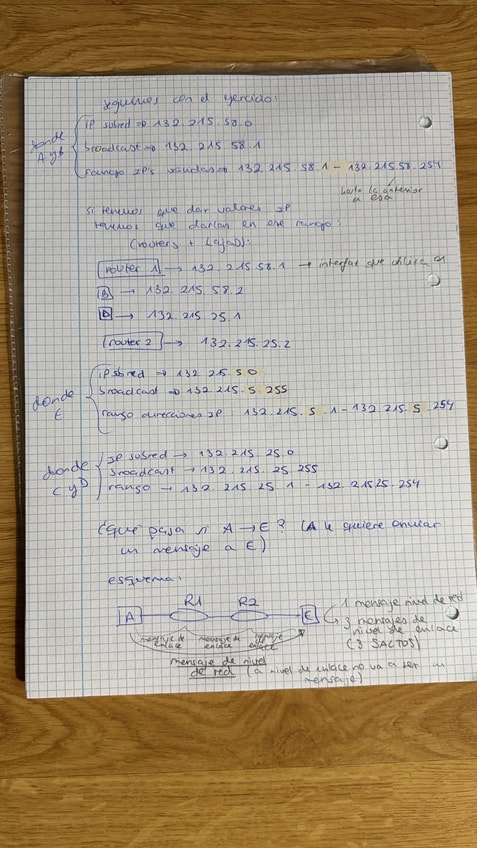 seguimos con el ejercicio:
donde A y B
IP subred => 132.215.58.0
broadcast => 132.215.58.1
rango IP's validas => 132.215.58.1 - 132.215.58.254
hasta la anterior a esa
si tenemos que dar valores IP
tenemos que darlas en ese rango:
(routers + cajas):
router 1 → 132.215.58.1 → interfaz que utiliza
B → 132.215.58.2
D → 132.215.25.1
router 2 → 132.215.25.2
donde E
IP subred => 132.215.5.0
broadcast => 132.215.5.255
rango direcciones IP: 132.215.5.1 - 132.215.5.254
donde C y D
IP subred → 132.215.25.0
broadcast → 132.215.25.255
rango → 132.215.25.1 - 132.21525.254
¿Qué pasa si A → E? (A le quiere enviar
un mensaje a E)
esquema:
A R1 R2 E
1 mensaje nivel de red
3 mensajes de
nivel de enlace
(3 SALTOS)
mensaje de enlace mensaje de enlace mensaje enlace
mensaje de nivel
de red (a nivel de enlace no va a ser un
mensaje)